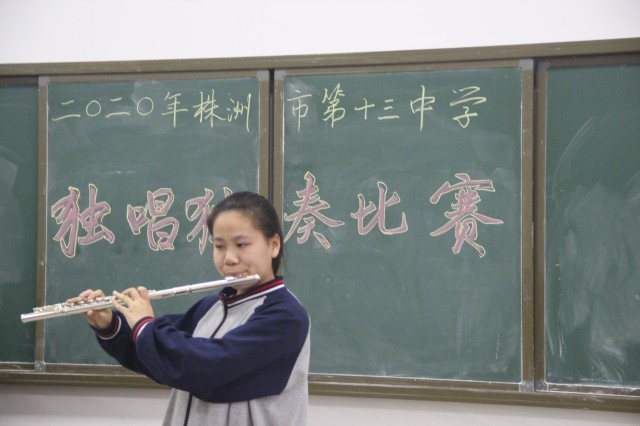 二〇二〇年株洲市第十三中学
独唱独奏比赛